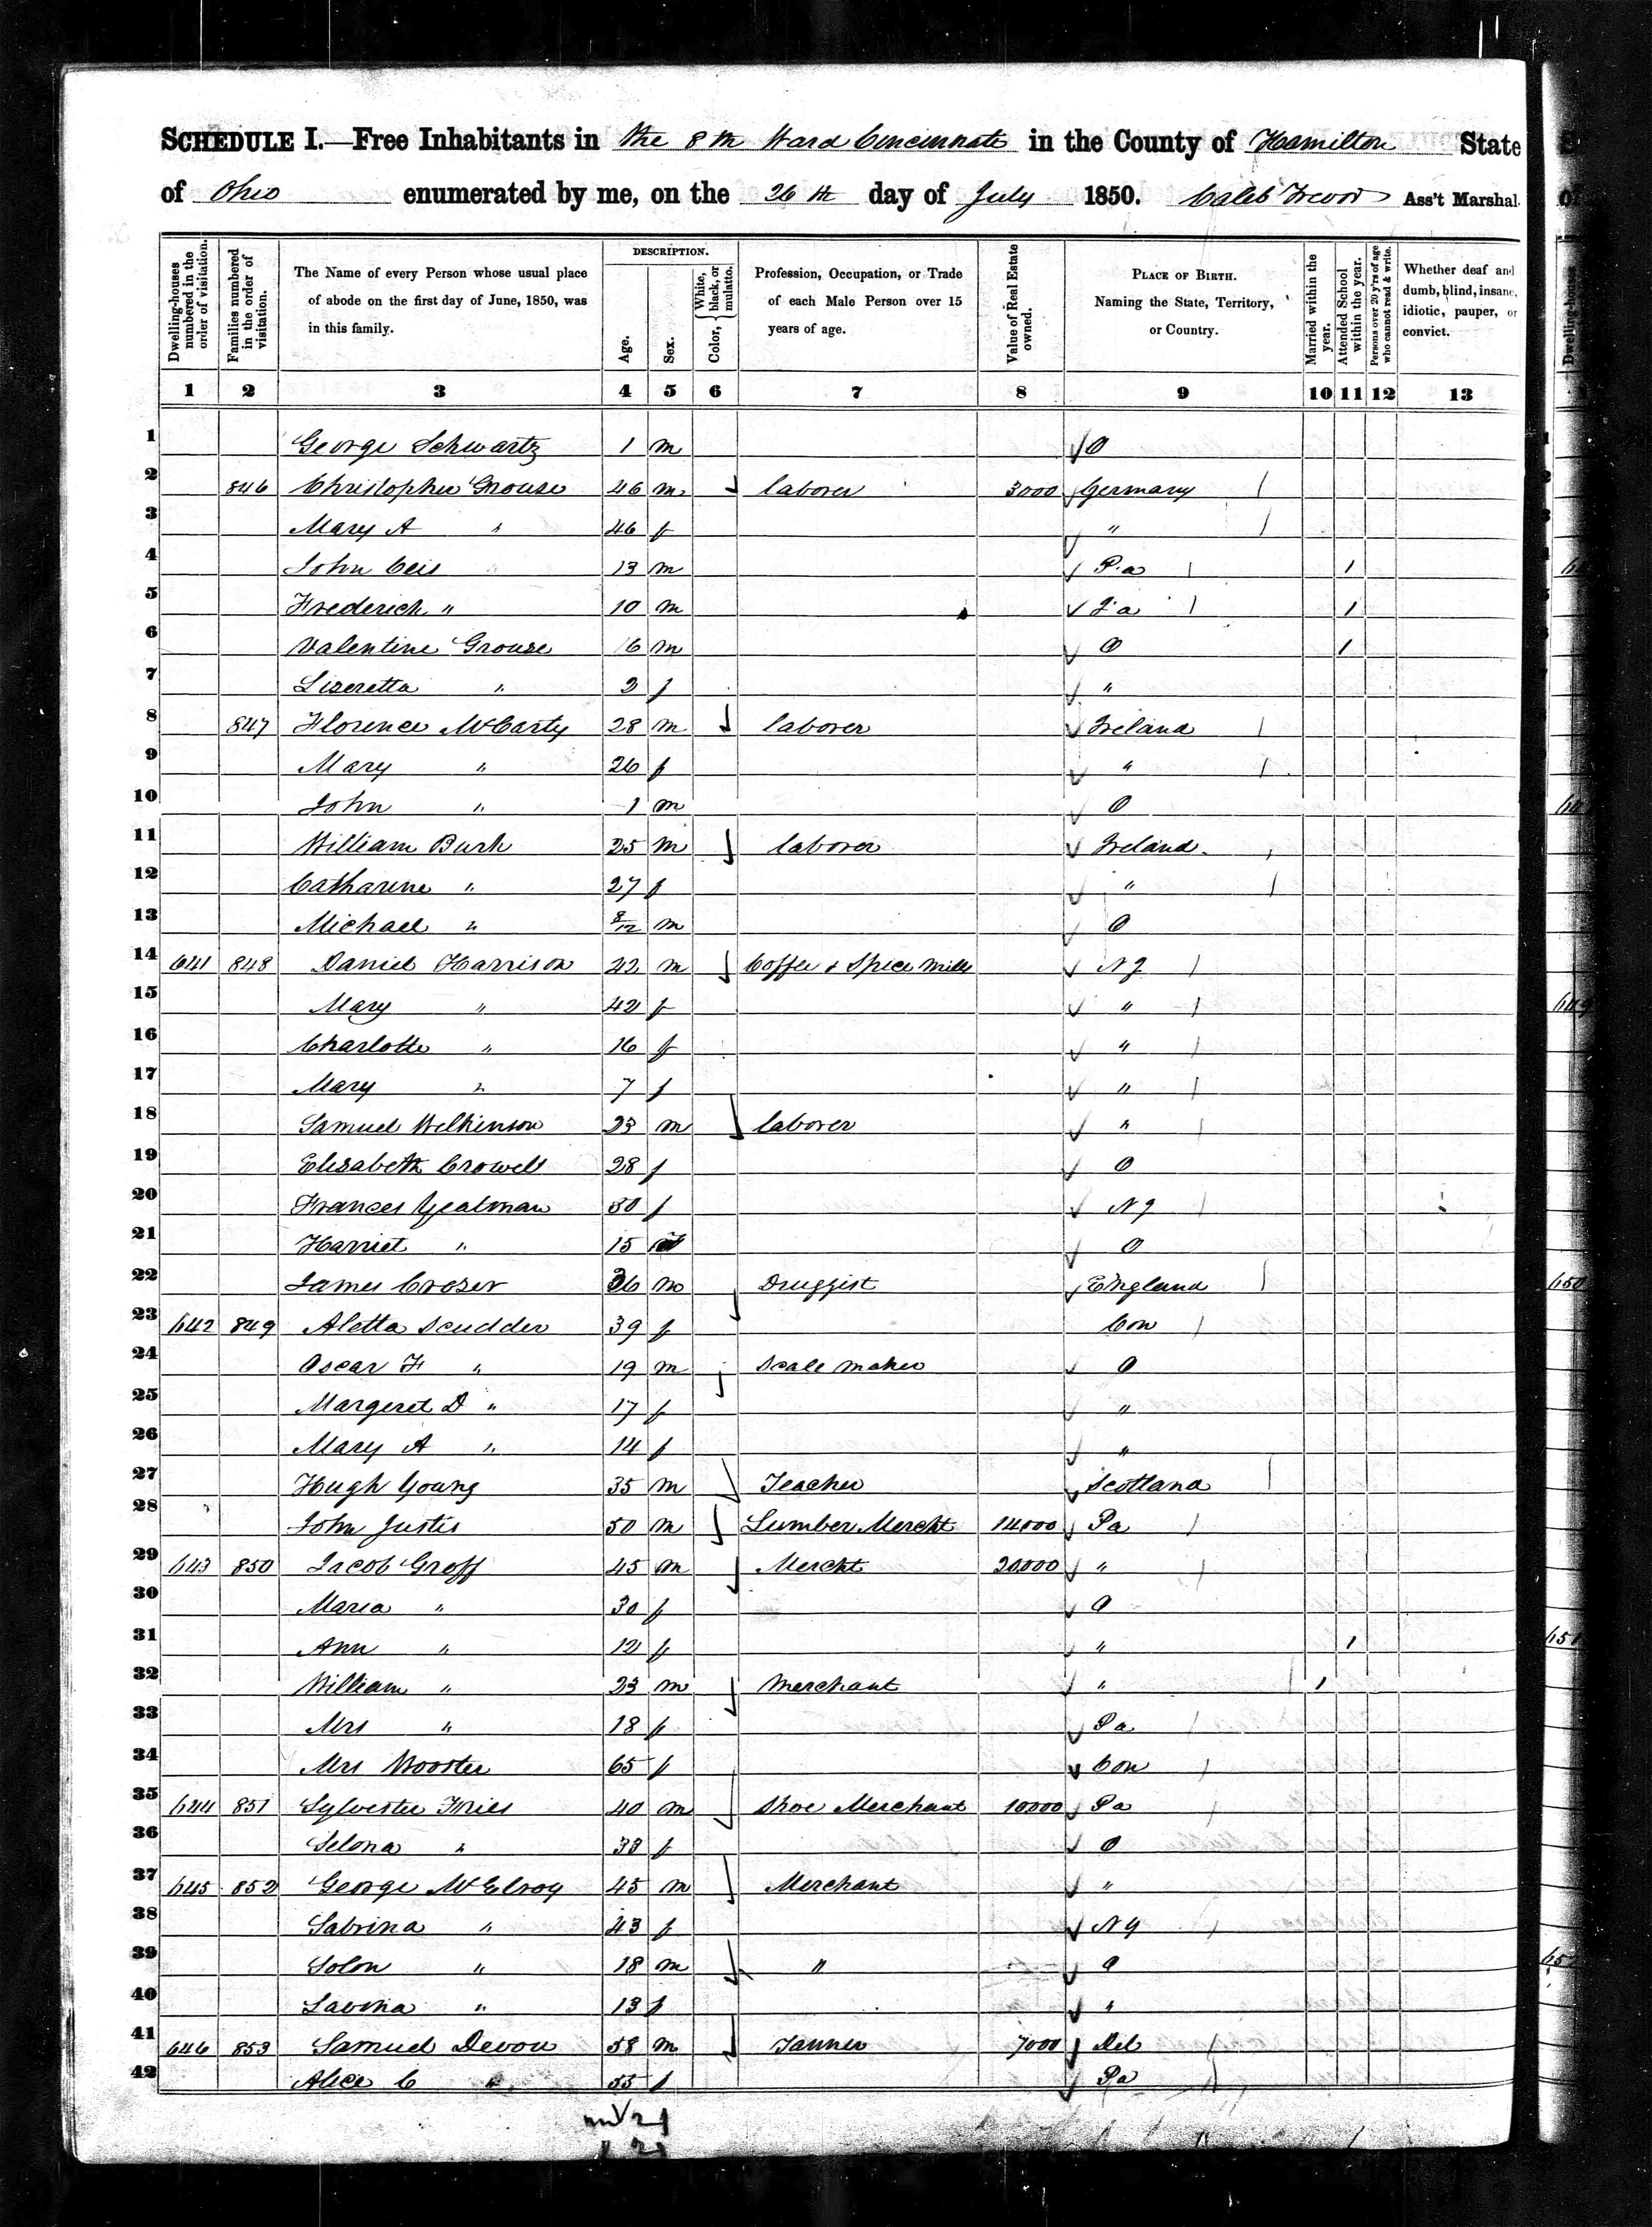 SCHEDULE I.—Free Inhabitants in the 8th Ward Cincinnati in the County of Hamilton State
of Ohio enumerated by me, on the 26th day of July 1850. Caleb Ass't Marshal.
Dwelling-houses numbered in the order of visitation.
Families numbered in the order of visitation.
The Name of every Person whose usual place of abode on the first day of June, 1850, was in this family.
DESCRIPTION.
Age.
Sex.
Color, White, black, or mulatto.
Profession, Occupation, or Trade of each Male Person over 15 years of age.
Value of Real Estate owned.
PLACE OF BIRTH. Naming the State, Territory, or Country.
Married within the year.
Attended School within the year.
Persons over 20 y'rs of age who cannot read & write.
Whether deaf and dumb, blind, insane, idiotic, pauper, or convict.
1 2 3 4 5 6 7 8 9 10 11 12 13
1 George Schwartz 1 m O
2 846 Christopher Grouse 46 m laborer 3000 Germany
3 Mary A " 46 f "
4 John Ceis " 13 m Pa 1
5 Frederich " 10 m Pa 1
6 Valentine Grouse 6 m O 1
7 Lizeretta " 3 f "
8 847 Florence McCarty 28 m laborer Ireland
9 Mary " 26 f "
10 John " 1 m O
11 William Burk 25 m laborer Ireland
12 Catharine " 27 f "
13 Michael " 8/12 m O
14 641 848 Daniel Harrison 42 m Coffee & Spice Mills NJ
15 Mary " 42 f "
16 Charlotte " 16 f "
17 Mary " 7 f "
18 Samuel Wilkinson 23 m laborer "
19 Elisabeth Crowell 28 f O
20 Frances Yeatman 30 f NJ
21 Harriet " 15 O
22 James Crozer 36 m Druggist England
23 642 849 Aletta Scudder 39 f Con
24 Oscar F " 19 m Scale maker O
25 Margeret D " 17 f "
26 Mary A " 14 f "
27 Hugh Young 35 m Teacher Scotland
28 John Justis 50 m Lumber Mercht 14000 Pa
29 643 850 Jacob Groff 45 m Mercht 20000 "
30 Maria " 30 f O
31 Ann " 12 f " 1
32 William " 23 m Merchant " 1
33 Mrs " 18 f Pa
34 Mrs Wooster 65 f Con
35 644 851 Sylvester 40 m Shoe Merchant 10000 Pa
36 Selona " 38 f O
37 645 852 George McElroy 45 m Merchant "
38 Sabrina " 43 f NY
39 Solon " 18 m " O
40 Lavina " 13 f "
41 646 853 Samuel Devou 58 m Tanner 7000 Del
42 Alice C " 55 f Pa
m 21
f 21